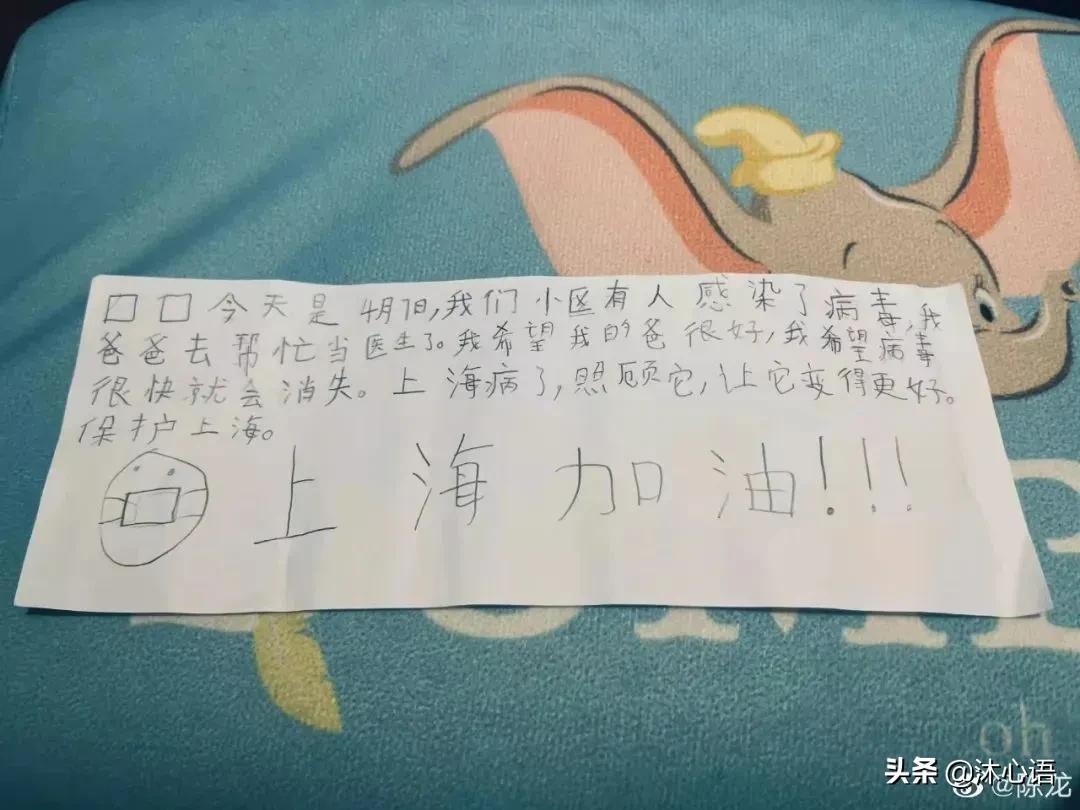 □ □ 今天是 4月7日,我们小区有人感染了病毒,我
爸爸去帮忙当医生了。我希望我的爸很好,我希望病毒
很快就会消失。上海病了,照顾它,让它变得更好。
保护上海。
上海加油!!!
oh
头条 @沐心语
@陈龙